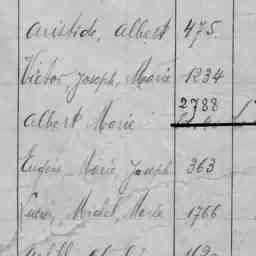 Aristide, Albert 475.
Victor, Joseph, Marie 1234
2788
Albert Marie
Eugène, Marie, Joseph 363
Lucien, Michel, Marie 1766